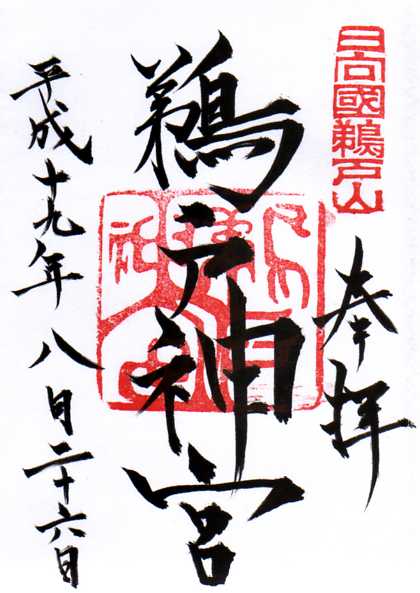 日向國鵜戸山
奉拝
鵜戸神宮
平成十九年八月二十六日